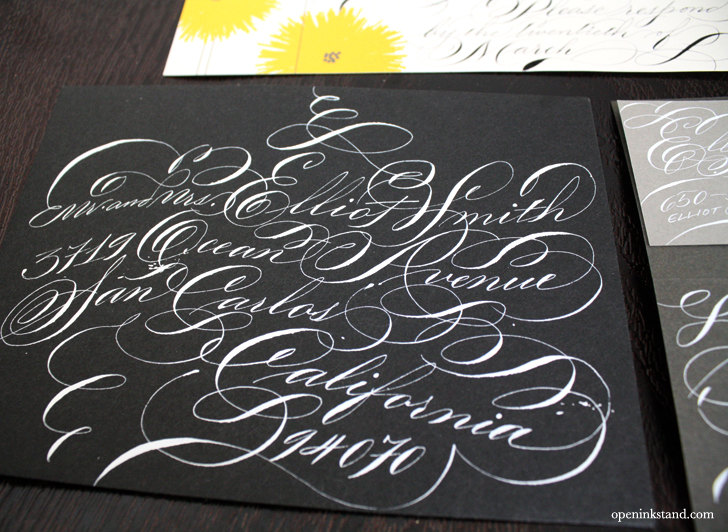 Please respond
by the twentieth of
March
Mr. and Mrs. Elliot Smith
3719 Ocean Avenue
San Carlos
California
94070
650-
ELLIOT
openinkstand.com